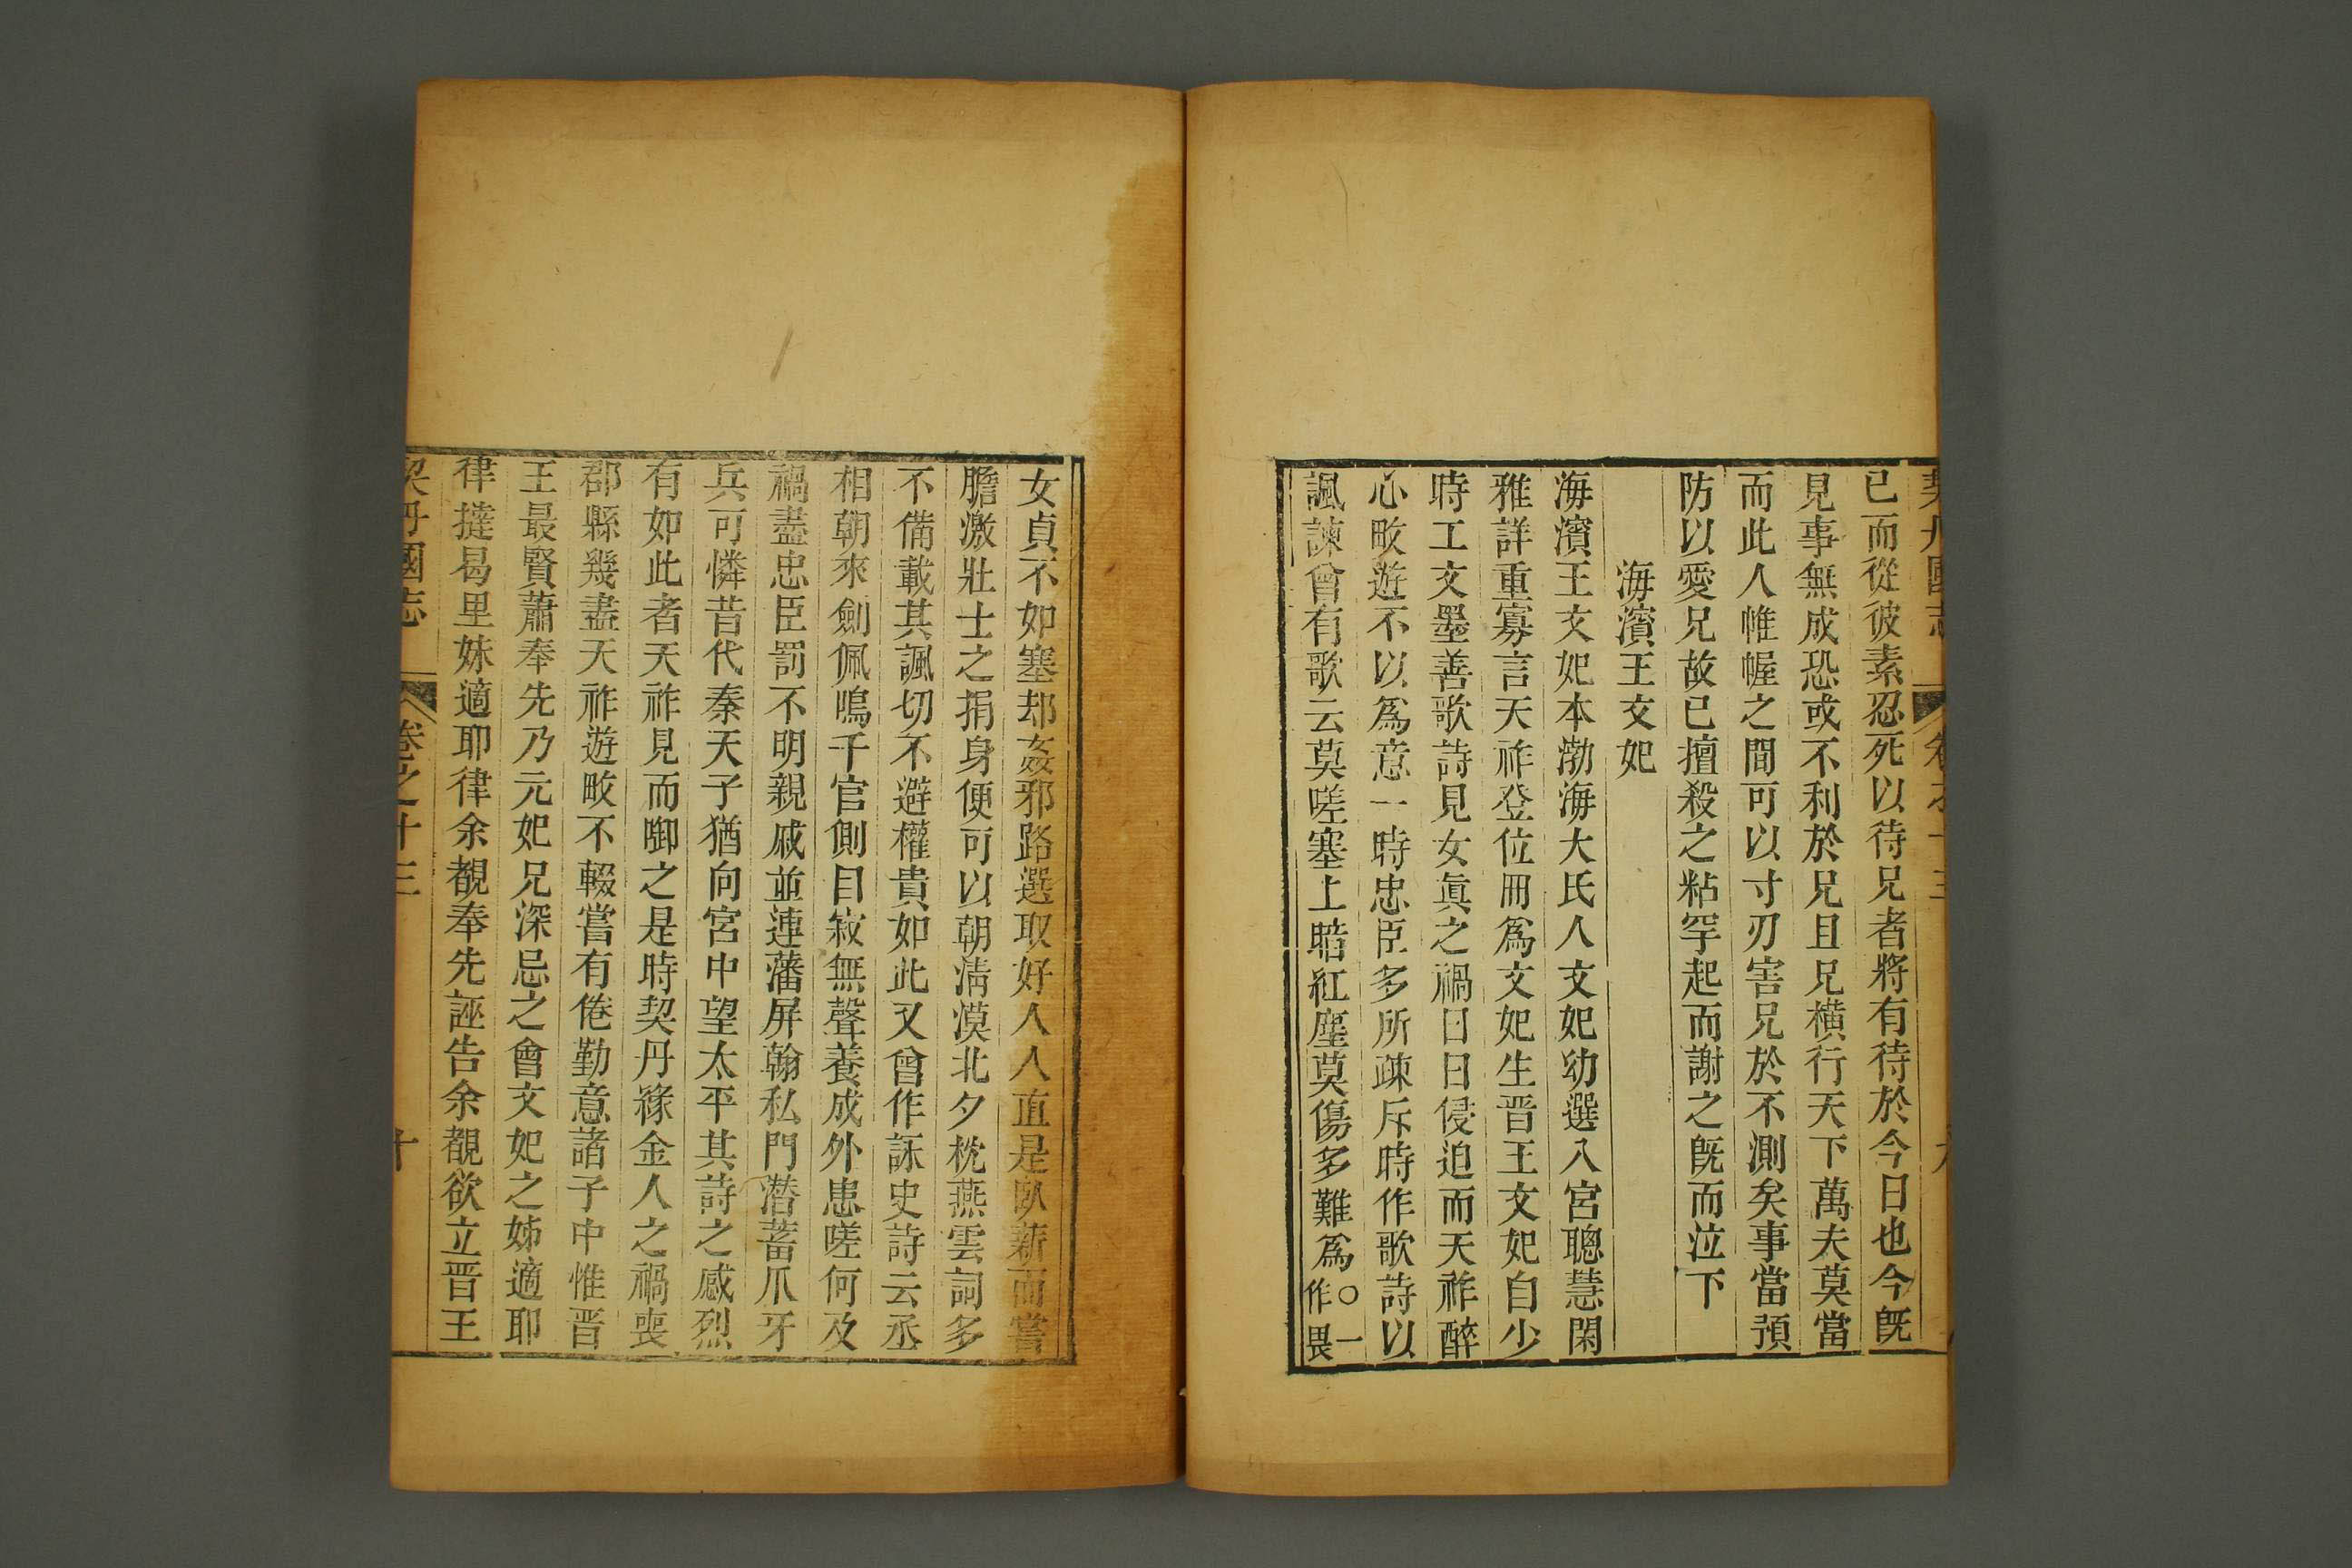 已而從彼素忍死以待兄者將有待於今日也今既
見事無成恐或不利於兄且兄橫行天下萬夫莫當
而此人帷幄之間可以寸刃害兄於不測矣事當預
防以愛兄故已擅殺之粘罕起而謝之既而泣下
海濱王文妃
海濱王文妃本渤海大氏人文妃幼選入宮聰慧閑
雅詳重寡言天祚登位冊爲文妃生晋王文妃自少
時工文墨善歌詩見女眞之禍日日侵迫而天祚醉
心畋遊不以爲意一時忠臣多所疎斥時作歌詩以
諷諫曾有歌云莫嗟塞上暗紅塵莫傷多難爲○一作畏
女貞不如塞却姦邪路選取好人人直是臥薪而嘗
膽激壯士之捐身便可以朝淸漠北夕枕燕雲詞多
不備載其諷切不避權貴如此又曾作詠史詩云丞
相朝來劍佩鳴千官側目寂無聲養成外患嗟何及
禍盡忠臣罰不明親戚並連藩屏翰私門潜蓄爪牙
兵可憐昔代秦天子猶向宮中望太平其詩之感烈
有如此者天祚見而啣之是時契丹緣金人之禍喪
郡縣幾盡天祚遊畋不輟嘗有倦勤意諸子中惟晋
王最賢蕭奉先乃元妃兄深忌之會文妃之姊適耶
律撻曷里妹適耶律余覩奉先誣告余覩欲立晋王
契丹國志 卷之十三 十